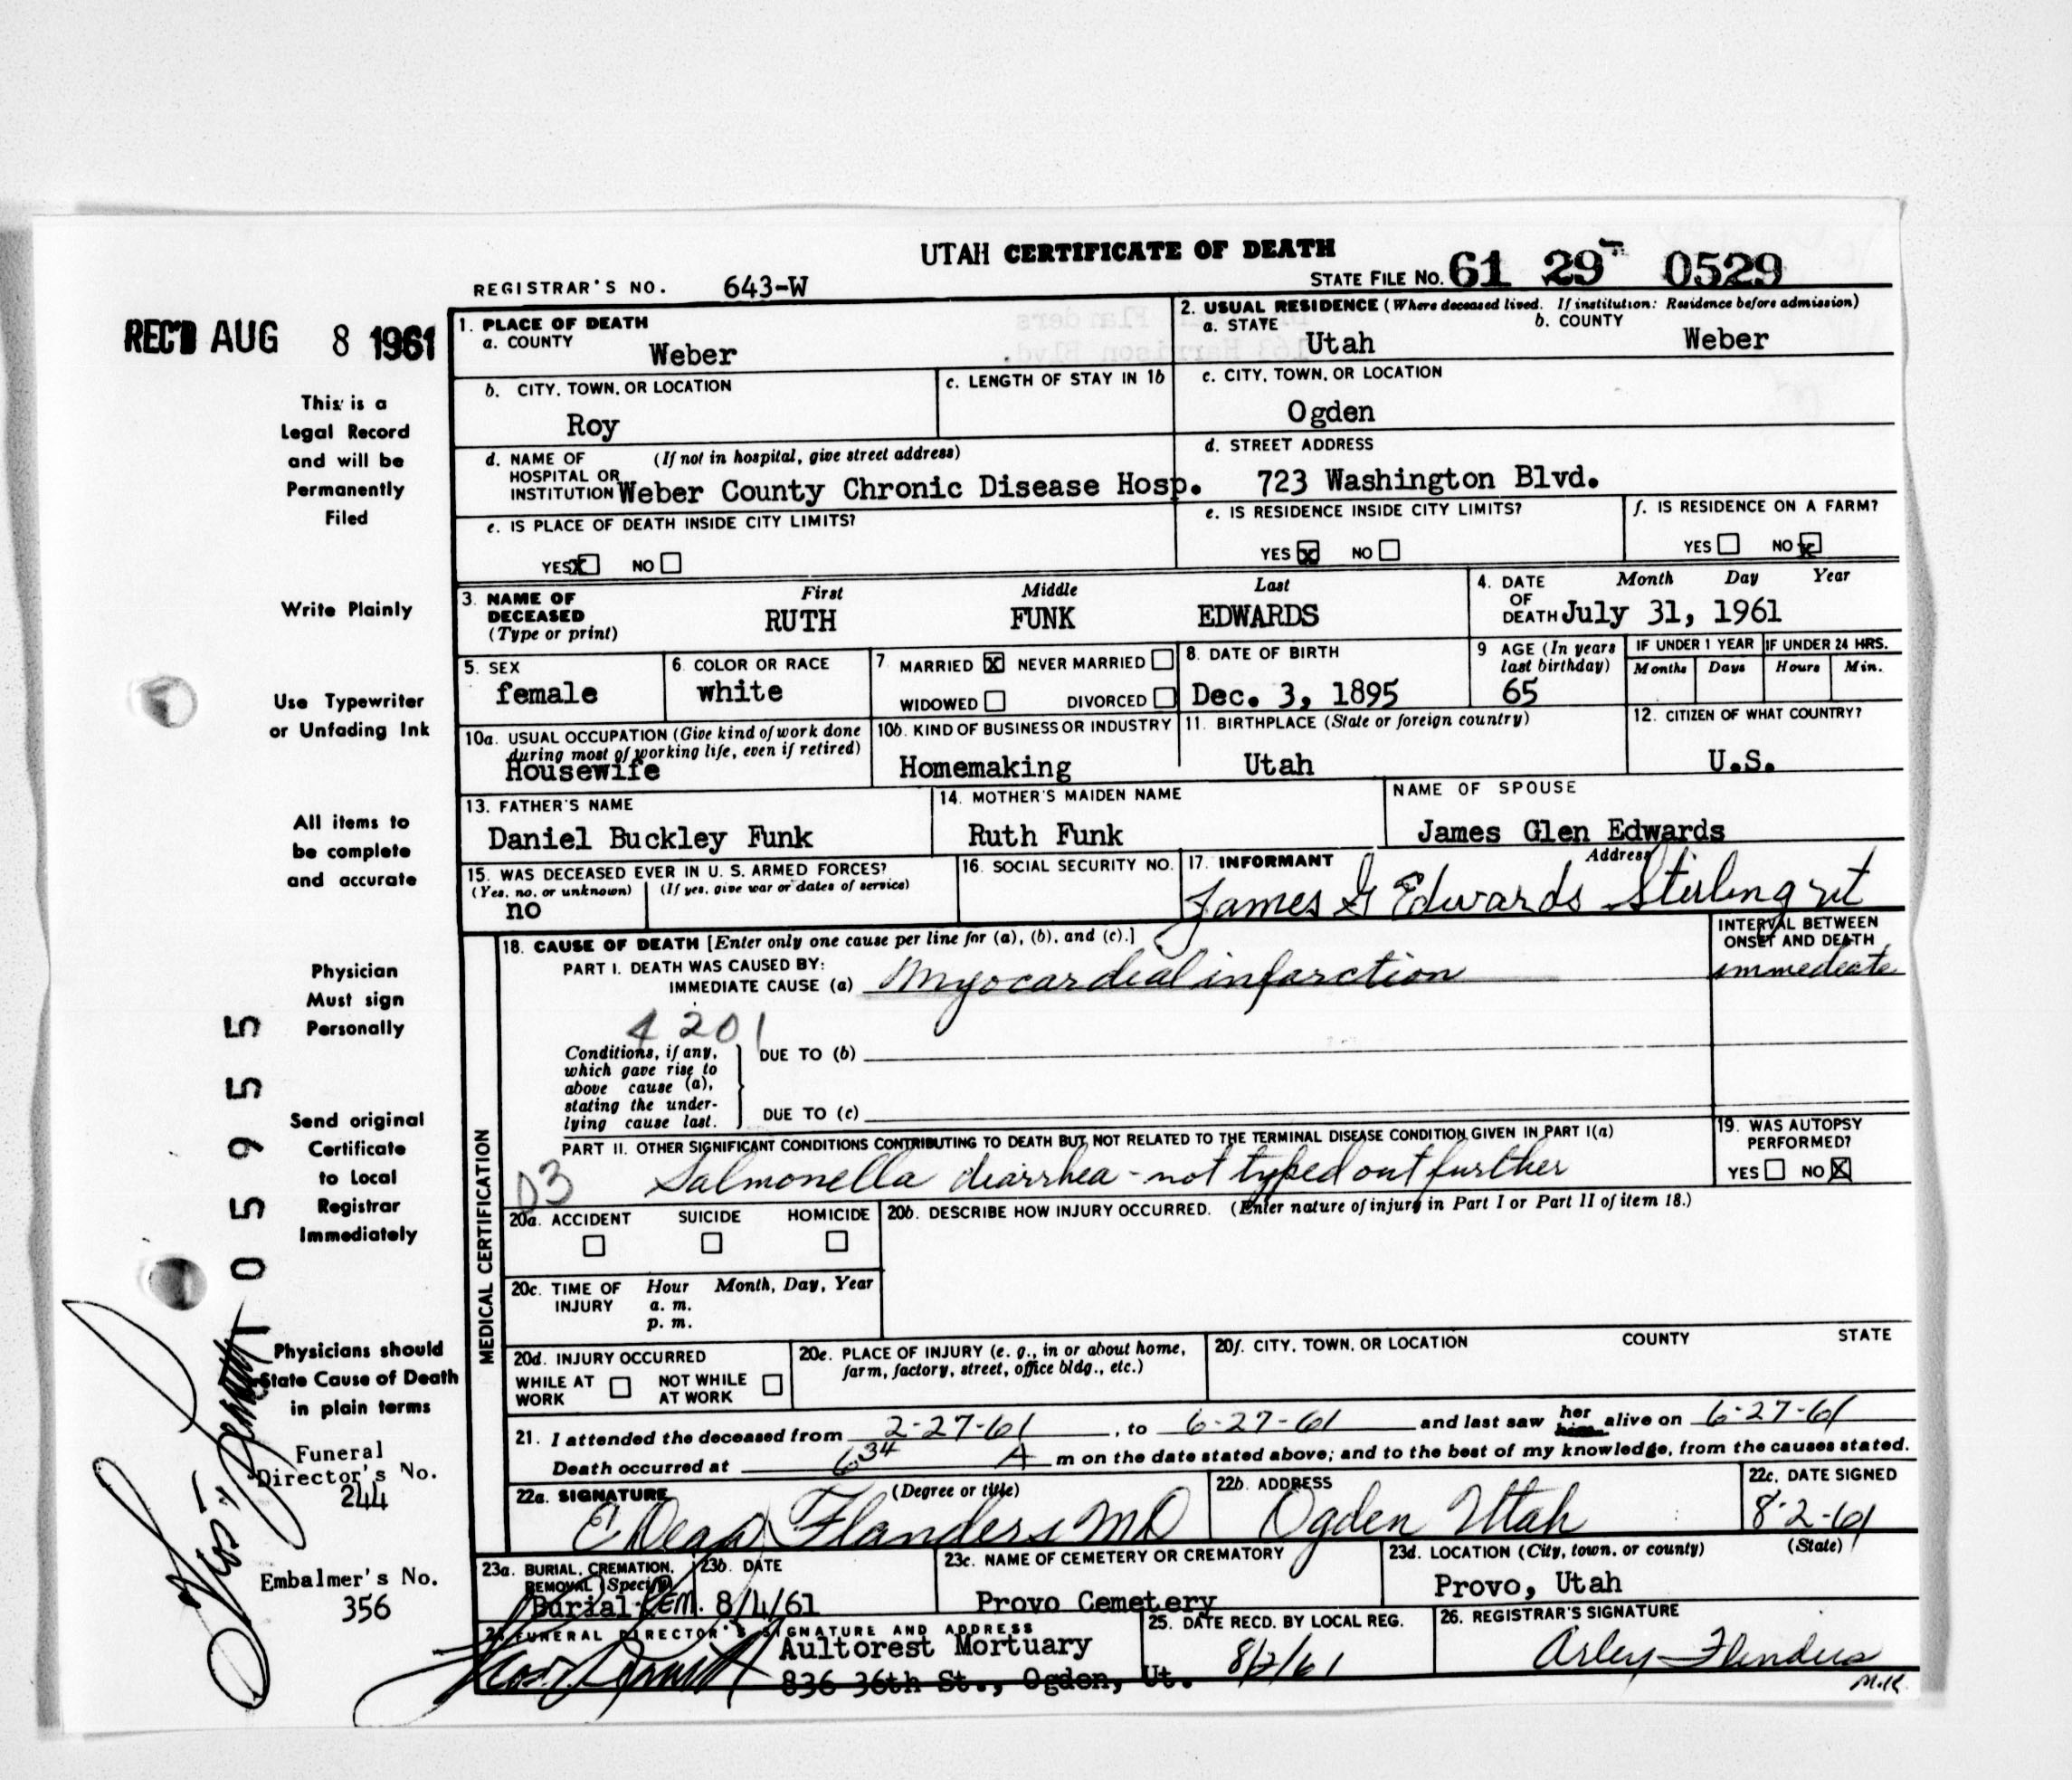 UTAH CERTIFICATE OF DEATH
REGISTRAR'S NO. 643-W
STATE FILE NO. 61 29 0529
REC'D AUG 8 1961
This is a
Legal Record
and will be
Permanently
Filed
Write Plainly
Use Typewriter
or Unfading Ink
All items to
be complete
and accurate
Physician
Must sign
Personally
Send original
Certificate
to Local
Registrar
Immediately
Physicians should
State Cause of Death
in plain terms
Funeral
Director's No.
244
Embalmer's No.
356
T 059555
1. PLACE OF DEATH
a. COUNTY
Weber
2. USUAL RESIDENCE (Where deceased lived. If institution: Residence before admission)
a. STATE
Utah
b. COUNTY
Weber
b. CITY, TOWN, OR LOCATION
Roy
c. LENGTH OF STAY IN 1b
c. CITY, TOWN, OR LOCATION
Ogden
d. NAME OF (If not in hospital, give street address)
HOSPITAL OR
INSTITUTION Weber County Chronic Disease Hosp.
d. STREET ADDRESS
723 Washington Blvd.
e. IS PLACE OF DEATH INSIDE CITY LIMITS?
YES X NO
e. IS RESIDENCE INSIDE CITY LIMITS?
YES X NO
f. IS RESIDENCE ON A FARM?
YES NO X
3. NAME OF
DECEASED
(Type or print)
First Middle Last
RUTH FUNK EDWARDS
4. DATE Month Day Year
OF
DEATH July 31, 1961
5. SEX
female
6. COLOR OR RACE
white
7. MARRIED X NEVER MARRIED
WIDOWED DIVORCED
8. DATE OF BIRTH
Dec. 3, 1895
9 AGE (In years
last birthday)
65
IF UNDER 1 YEAR IF UNDER 24 HRS.
Months Days Hours Min.
10a. USUAL OCCUPATION (Give kind of work done
during most of working life, even if retired)
Housewife
10b. KIND OF BUSINESS OR INDUSTRY
Homemaking
11. BIRTHPLACE (State or foreign country)
Utah
12. CITIZEN OF WHAT COUNTRY?
U.S.
13. FATHER'S NAME
Daniel Buckley Funk
14. MOTHER'S MAIDEN NAME
Ruth Funk
NAME OF SPOUSE
James Glen Edwards
15. WAS DECEASED EVER IN U. S. ARMED FORCES?
(Yes, no, or unknown) (If yes, give war or dates of service)
no
16. SOCIAL SECURITY NO.
17. INFORMANT Address
James G Edwards Sterling ut
MEDICAL CERTIFICATION
18. CAUSE OF DEATH [Enter only one cause per line for (a), (b), and (c).]
INTERVAL BETWEEN
ONSET AND DEATH
PART I. DEATH WAS CAUSED BY:
IMMEDIATE CAUSE (a) Myocardial infarction immedeate
4201
Conditions, if any,
which gave rise to
above cause (a),
stating the under-
lying cause last.
DUE TO (b)
DUE TO (c)
PART II. OTHER SIGNIFICANT CONDITIONS CONTRIBUTING TO DEATH BUT NOT RELATED TO THE TERMINAL DISEASE CONDITION GIVEN IN PART I(a)
03 Salmonella diarrhea - not typed out further
19. WAS AUTOPSY
PERFORMED?
YES NO X
20a. ACCIDENT SUICIDE HOMICIDE
20b. DESCRIBE HOW INJURY OCCURRED. (Enter nature of injury in Part I or Part II of item 18.)
20c. TIME OF Hour Month, Day, Year
INJURY a. m.
p. m.
20d. INJURY OCCURRED
WHILE AT WORK NOT WHILE AT WORK
20e. PLACE OF INJURY (e. g., in or about home,
farm, factory, street, office bldg., etc.)
20f. CITY, TOWN, OR LOCATION COUNTY STATE
21. I attended the deceased from 2-27-61, to 6-27-61 and last saw her him alive on 6-27-61
Death occurred at 6 34 A m on the date stated above; and to the best of my knowledge, from the causes stated.
22a. SIGNATURE (Degree or title)
E Dean Flanders MD
22b. ADDRESS
Ogden Utah
22c. DATE SIGNED
8-2-61
23a. BURIAL, CREMATION,
REMOVAL (Specify)
Burial-REM.
23b. DATE
8/4/61
23c. NAME OF CEMETERY OR CREMATORY
Provo Cemetery
23d. LOCATION (City, town, or county) (State)
Provo, Utah
24. FUNERAL DIRECTOR'S SIGNATURE AND ADDRESS
Aultorest Mortuary
836 36th St., Ogden, Ut.
25. DATE RECD. BY LOCAL REG.
8/2/61
26. REGISTRAR'S SIGNATURE
Arley Flinders
M.K.